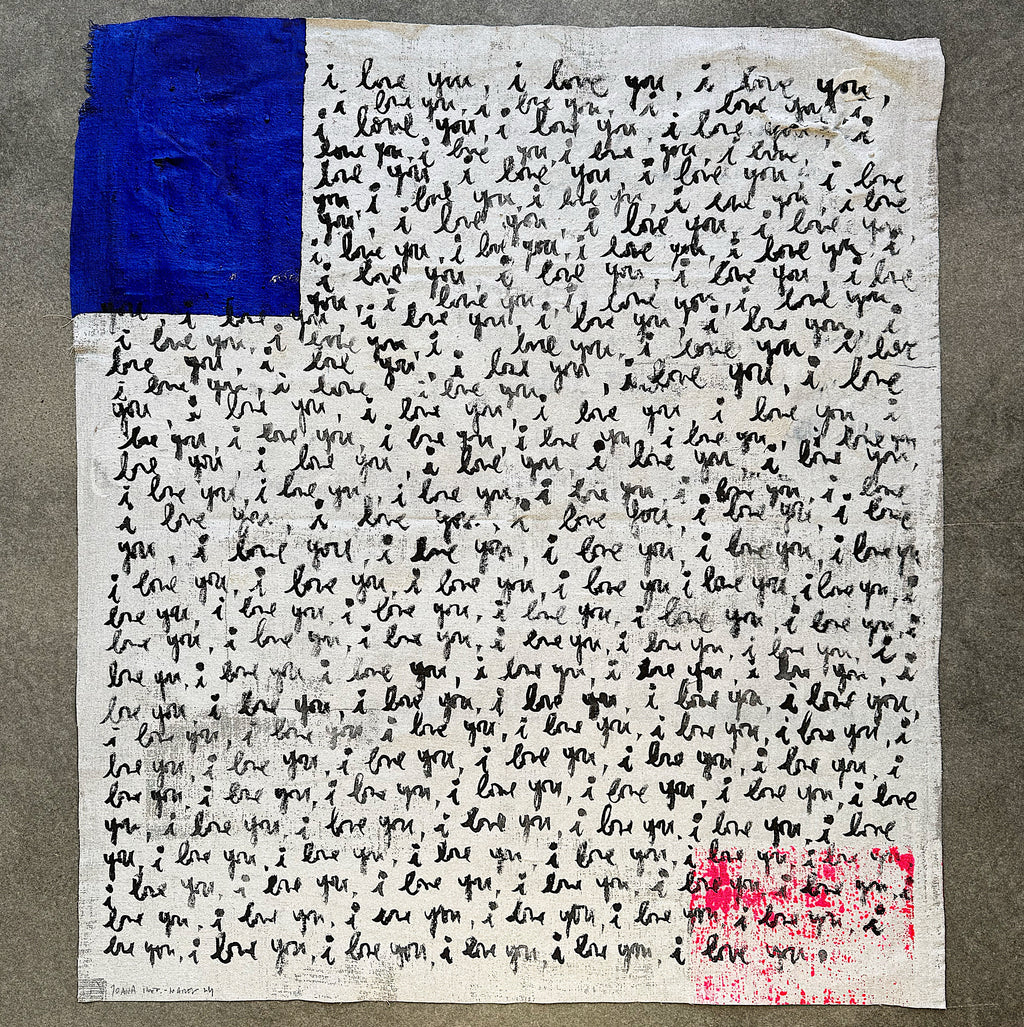 i love you, i love you, i love you,
i love you, i love you, i love you, i
i love you, i love you, i love you, i
love you, i love you, i love you, i love,
love you, i love you, i love you, i love
you, i love you, i love you, i love you, i love
you, i love you, i love you, i love you,
i love you, i love you, i love you, i love you, i
i love you, i love you, i love you, i love
you, i love you, i, love you, i love you,
you i love you, i love you, i love you, i love you, i
i love you, i love you, i love you, i love you i love
love you, i love you, i love you, i love you, i, love
i love you, i love i love you
you, i love you, i love you, i love you i love you, i
love you, i love you, i love you, i love you i love you, i love you,
love you, i love you, i love you, i love you, i love you,
i love you, i love you, i love you, i love you, i love you, i love
i love you, i love you, i love you, i love you, i love
you, i love you, i love you, i love you, i love you, i love you
i love you, i love you, i love you, i love you, i love you, i love you, i
love you, i love you, i love you, i love you, i love you, i love you, i
love you, i love you, i love you, i love you, i love you, i love you, i
love you, i love you, i love you, i love you, i love you, i love you, i
love you, i love you, i love you, i love you, i love you, i love you,
i love you, i love you i love you, i love you, i love you, i love you, i
love you, i love you, i love you, i love you, i love you, i love you, i
love you, i love you, i love you, i love you, i love you, i love you, i love
you, i love you, i love you, i love you, i love you, i love you, i love
you, i love you, i love you, i love you, i love you, i love you, i love you
i love you, i love you, i love you, i love you, i love you, i love you, i
love you, i love you, i love you, i love you, i love you, i love you, i
love you, i love you, i love you, i love you, i love you, i love you.
JOANA